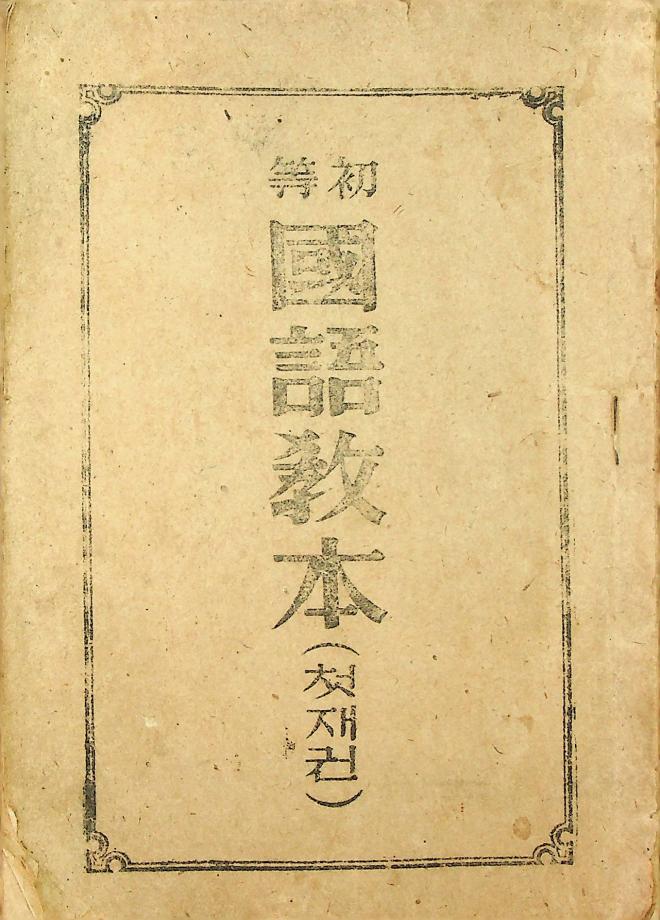 初等
國語教本
(첫재권)